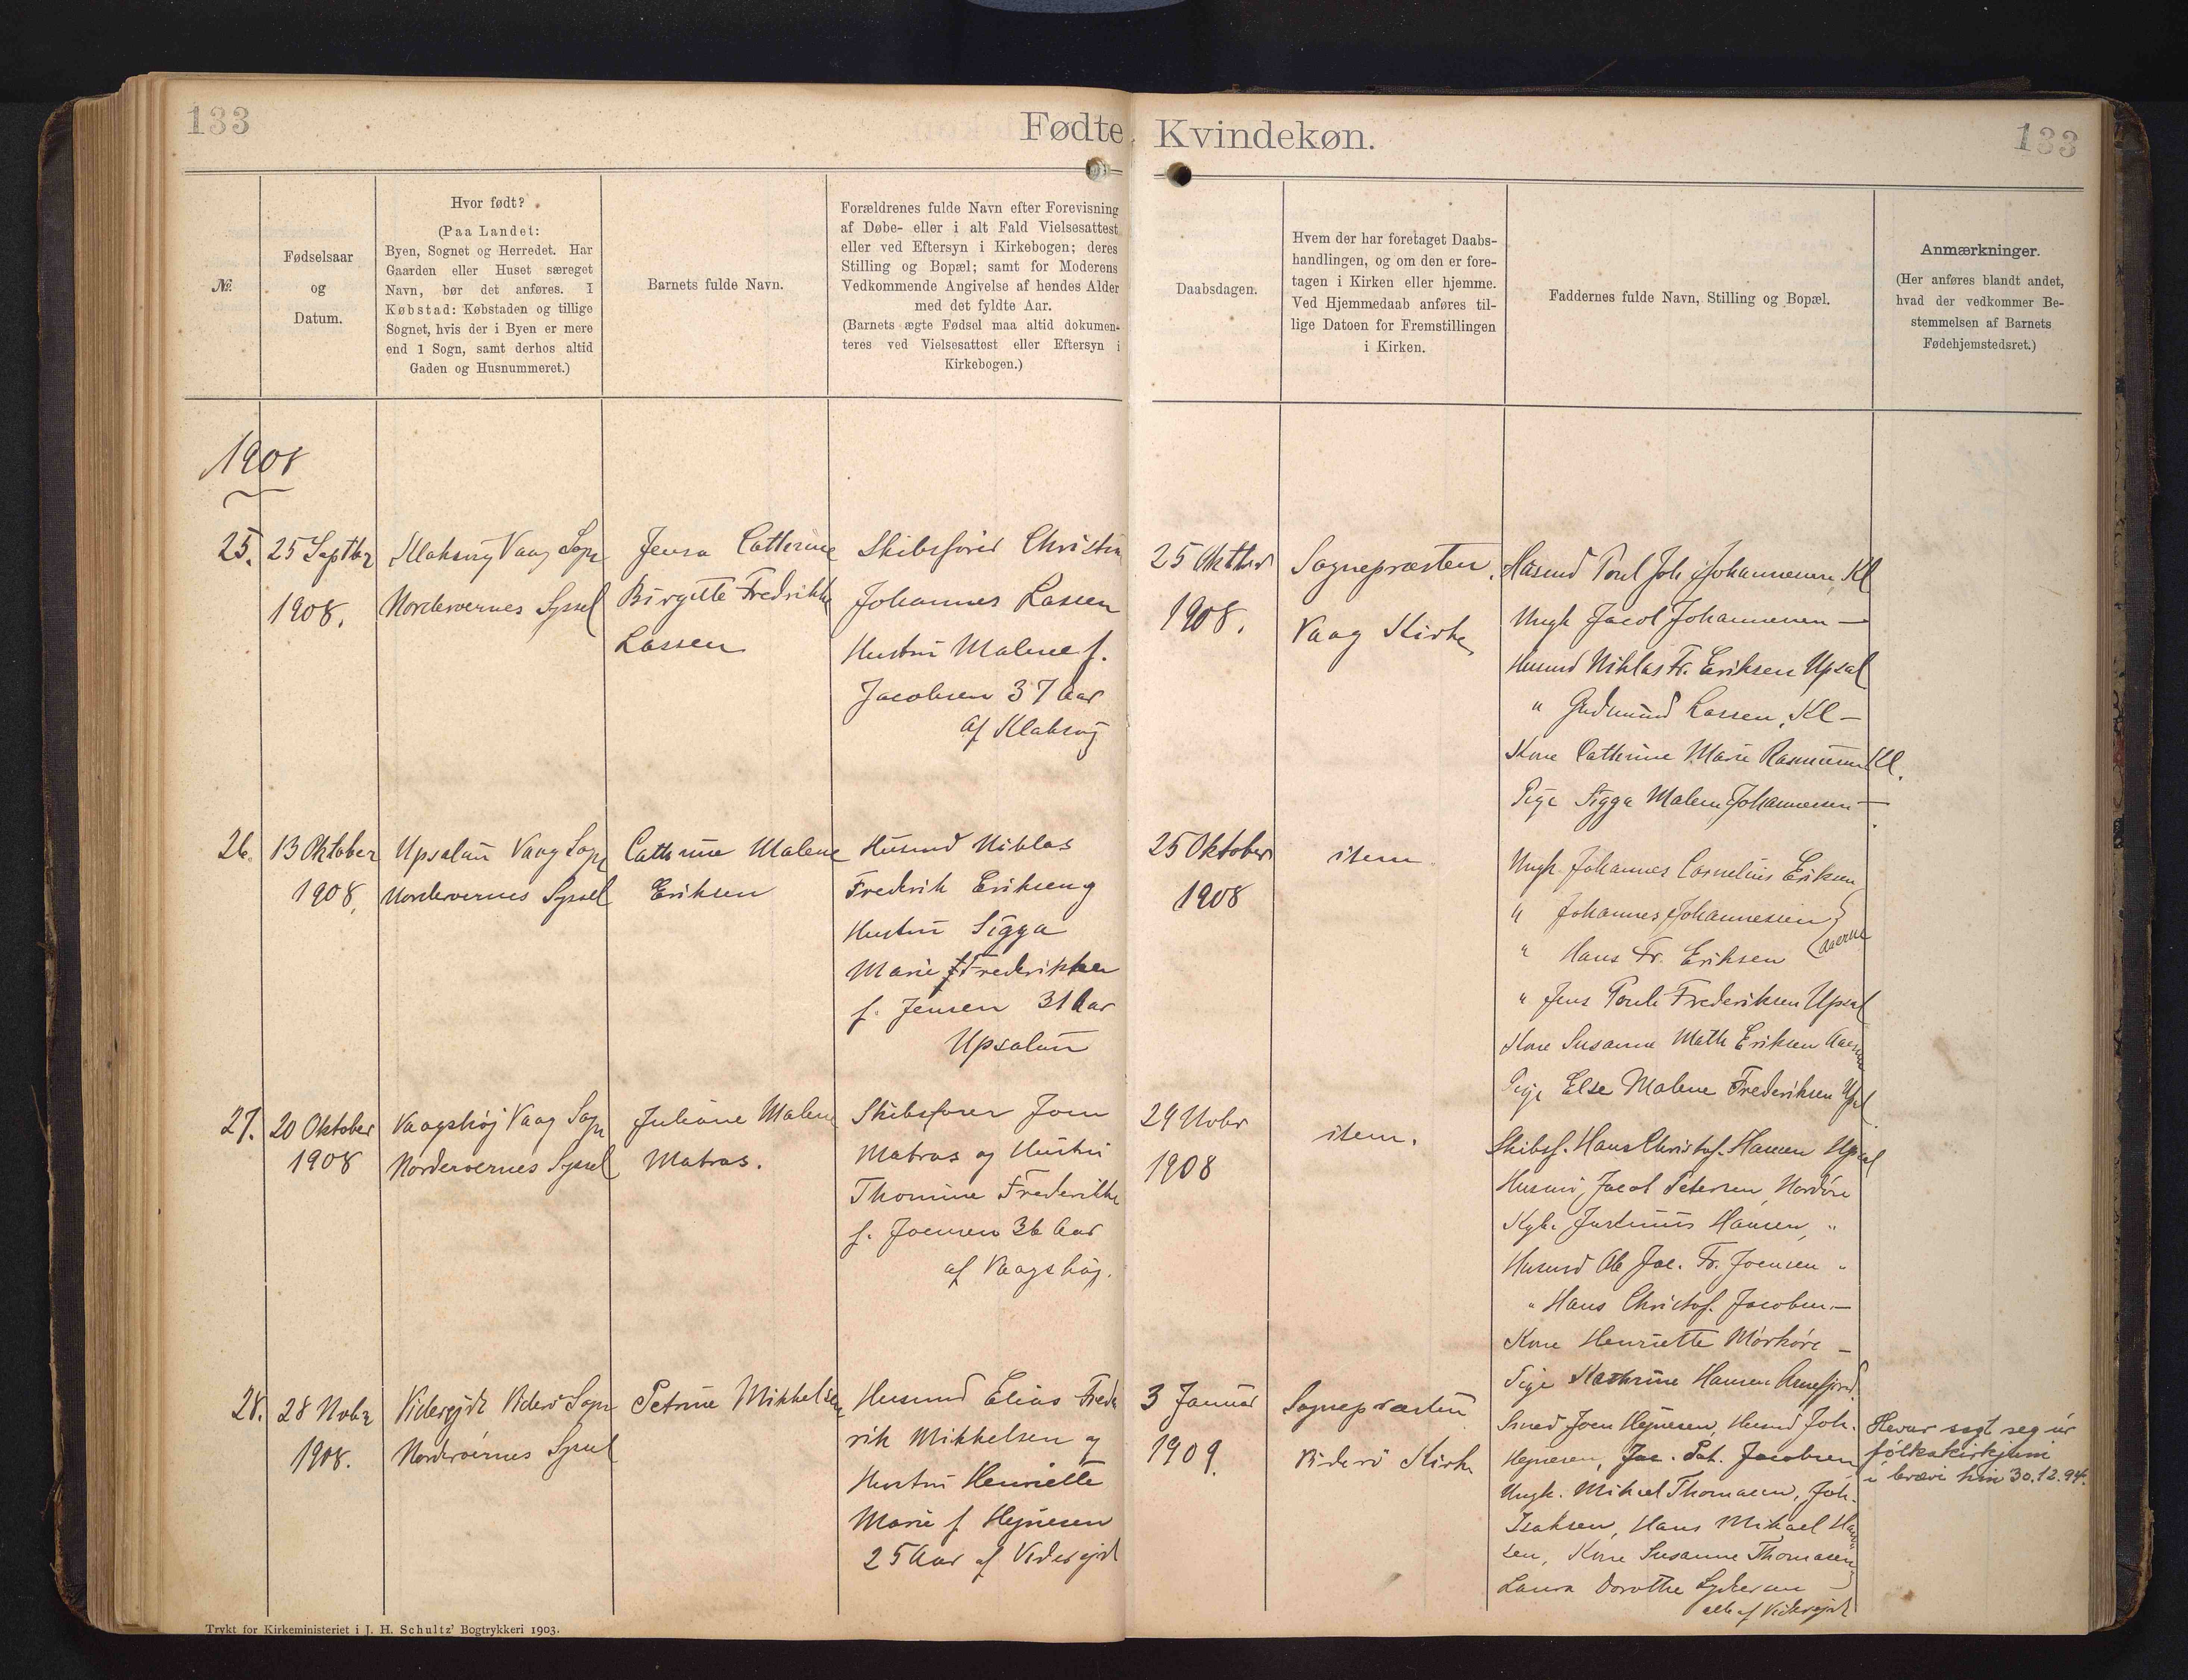 133
Fødte
Kvindekøn.
133
№.
Fødselsaar
og
Datum.
Hvor født?
(Paa Landet:
Byen, Sognet og Herredet. Har
Gaarden eller Huset særeget
Navn, bør det anføres. I
Købstad: Købstaden og tillige
Sognet, hvis der i Byen er mere
end 1 Sogn, samt derhos altid
Gaden og Husnummeret.)
Barnets fulde Navn.
Forældrenes fulde Navn efter Forevisning
af Døbe- eller i alt Fald Vielsesattest
eller ved Eftersyn i Kirkebogen; deres
Stilling og Bopæl; samt for Moderens
Vedkommende Angivelse af hendes Alder
med det fyldte Aar.
(Barnets ægte Fødsel maa altid dokumen-
teres ved Vielsesattest eller Eftersyn i
Kirkebogen.)
Daabsdagen.
Hvem der har foretaget Daabs-
handlingen, og om den er fore-
tagen i Kirken eller hjemme.
Ved Hjemmedaab anføres til-
lige Datoen for Fremstillingen
i Kirken.
Faddernes fulde Navn, Stilling og Bopæl.
Anmærkninger.
(Her anføres blandt andet,
hvad der vedkommer Be-
stemmelsen af Barnets
Fødehjemstedsret.)
1908
25.
25 Septbr
1908.
Klaksvig Vaag Sogn
Norderøernes Syssel
Jensa Catherine
Birgitte Fredrikke
Lassen
Skibsfører Christian
Johannes Lassen
Hustru Malene f.
Jacobsen 37 Aar
af Klaksvig
25 Oktbr
1908.
Sognepræsten.
Vaag Kirke
Husmd Poul Joh Johannesen, Kl
Ungk Jacob Johannesen —
Husmd Niklas Fr. Eriksen Upsal
" Gudmund Lassen, Kl —
Kone Catherine Marie Rasmussen Kl.
Pige Sigga Malene Johannesen —
26.
13 Oktober
1908.
Upsalum Vaag Sogn
Norderøernes Syssel
Cathrine Malene
Eriksen
Husmd Niklas
Frederik Eriksen og
Hustru Sigga
Marie Frederikke
f. Jensen 31 Aar
Upsalum
25 Oktober
1908
item
Ungk. Johannes Cornelius Eriksen
" Johannes Johannessen
" Hans Fr. Eriksen
" Jens Pouli Frederiksen Upsal
Kone Susanne Math Eriksen
Pige Else Malene Frederiksen Ups
27.
20 Oktober
1908
Vaagshøj Vaag Sogn
Norderøernes Syssel
Juliane Malene
Matras.
Skibsfører Joen
Matras og Hustru
Thomine Frederikke
f. Joensen 36 Aar
af Vaagshøj.
29 Novbr
1908
item.
Skibsf. Hans Christof. Hansen Upsal
Husmd, Jacob Petersen, Nordøre
Justinus Hansen, "
Husmd Ole Jac. Fr. Joensen "
" Hans Christof. Jacobsen —
Kone Henriette Mørkøre —
Pige Kathrine Hansen Arnefjord.
28.
28 Novbr
1908.
Viderejde Viderø Sogn
Norderøernes Syssel
Petrine Mikkelsen
Husmd Elias Frede
rik Mikkelsen og
Hustru Henriette
Marie f Hejnesen
25 Aar af Viderejde
3 Januar
1909.
Sognepræsten
Viderø Kirke
Smed Joen Hejnesen, Husmd Joh.
Hejnesen, Jac. Pet. Jacobsen
Ungk. Mikael Thomasen, Joh.
Isaksen, Hans Mikael Han
sen, Kone Susanne Thomasen
Laura Dorothe
alle af Viderejde
Hevur sagt seg úr
fólkakirkjuni
í brævi hin 30.12.94.
Trykt for Kirkeministeriet i J. H. Schultz' Bogtrykkeri 1903.